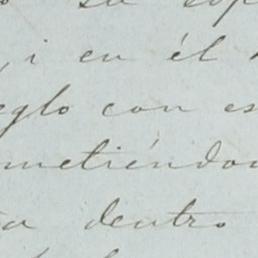 su
, i en él
eglo con es
metiéndo
a dentro